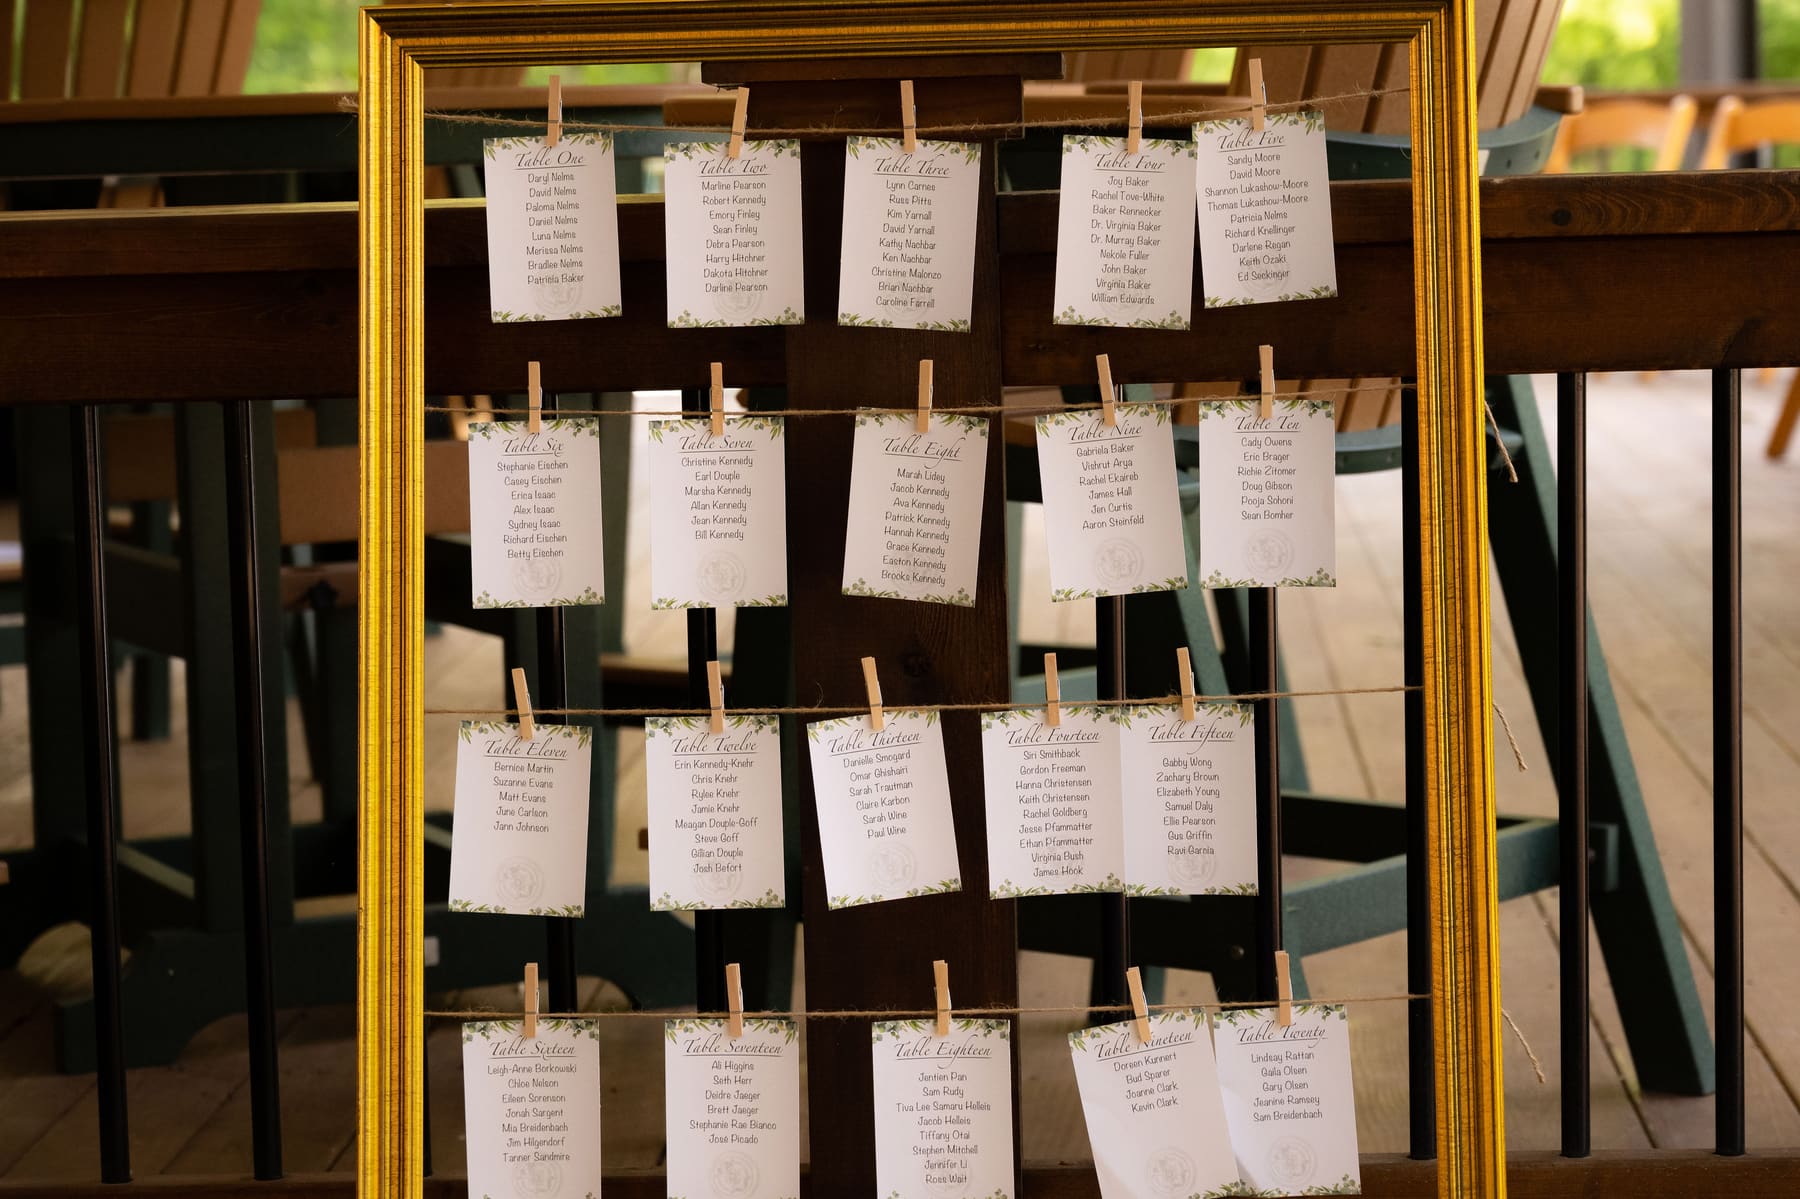 Table One
Daryl Nelms
David Nelms
Paloma Nelms
Daniel Nelms
Luna Nelms
Merissa Nelms
Bradlee Nelms
Patricia Baker
Table Two
Marline Pearson
Robert Kennedy
Emory Finley
Sean Finley
Debra Pearson
Harry Hitchner
Dakota Hitchner
Darline Pearson
Table Three
Lynn Carnes
Russ Pitts
Kim Yarnall
David Yarnall
Kathy Nachbar
Ken Nachbar
Christine Malonzo
Brian Nachbar
Caroline Farrell
Table Four
Joy Baker
Rachel Tove-White
Baker Rennecker
Dr. Virginia Baker
Dr. Murray Baker
Nekole Fuller
John Baker
Virginia Baker
William Edwards
Table Five
Sandy Moore
David Moore
Shannon Lukashow-Moore
Thomas Lukashow-Moore
Patricia Nelms
Richard Knellinger
Darlene Regan
Keith Ozaki
Ed Seckinger
Table Six
Stephanie Eischen
Casey Eischen
Erica Isaac
Alex Isaac
Sydney Isaac
Richard Eischen
Betty Eischen
Table Seven
Christine Kennedy
Earl Douple
Marsha Kennedy
Allan Kennedy
Jean Kennedy
Bill Kennedy
Table Eight
Marah Lidey
Jacob Kennedy
Ava Kennedy
Patrick Kennedy
Hannah Kennedy
Grace Kennedy
Easton Kennedy
Brooks Kennedy
Table Nine
Gabriela Baker
Vishrut Arya
Rachel Ekaireb
James Hall
Jen Curtis
Aaron Steinfeld
Table Ten
Cady Owens
Eric Brager
Richie Zitomer
Doug Gibson
Pooja Sohoni
Sean Bomher
Table Eleven
Bernice Martin
Suzanne Evans
Matt Evans
June Carlson
Jann Johnson
Table Twelve
Erin Kennedy-Knehr
Chris Knehr
Rylee Knehr
Jamie Knehr
Meagan Douple-Goff
Steve Goff
Gillian Douple
Josh Befort
Table Thirteen
Danielle Smogard
Omar Ghishairi
Sarah Trautman
Claire Karbon
Sarah Wine
Paul Wine
Table Fourteen
Siri Smithback
Gordon Freeman
Hanna Christensen
Keith Christensen
Rachel Goldberg
Jesse Pfammatter
Ethan Pfammatter
Virginia Bush
James Hook
Table Fifteen
Gabby Wong
Zachary Brown
Elizabeth Young
Samuel Daly
Ellie Pearson
Gus Griffin
Ravi Garcia
Table Sixteen
Leigh-Anne Borkowski
Chloe Nelson
Eileen Sorenson
Jonah Sargent
Mia Breidenbach
Jim Hilgendorf
Tanner Sandmire
Table Seventeen
Ali Higgins
Seth Herr
Deidre Jaeger
Brett Jaeger
Stephanie Rae Bianco
José Picado
Table Eighteen
Jentien Pan
Sam Rudy
Tiva Lee Samaru Helleis
Jacob Helleis
Tiffany Otai
Stephen Mitchell
Jennifer Li
Ross Wait
Table Nineteen
Doreen Kunnert
Bud Sparer
Joanne Clark
Kevin Clark
Table Twenty
Lindsay Rattan
Gaila Olsen
Gary Olsen
Jeanine Ramsey
Sam Breidenbach